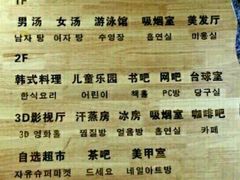 1F
男汤 女汤 游泳馆 吸烟室 美发厅
남자 탕 여자 탕 수영장 흡연실 미용실
2F
韩式料理 儿童乐园 书吧 网吧 台球室
한식요리 어린이 책홀 PC방 당구실
3D影视厅 汗蒸房 冰房 吸烟室 咖啡吧
3D 영화홀 찜질방 얼음방 흡연실 카페
自选超市 茶吧 美甲室
자유슈퍼마켓 드세요 네일아트방